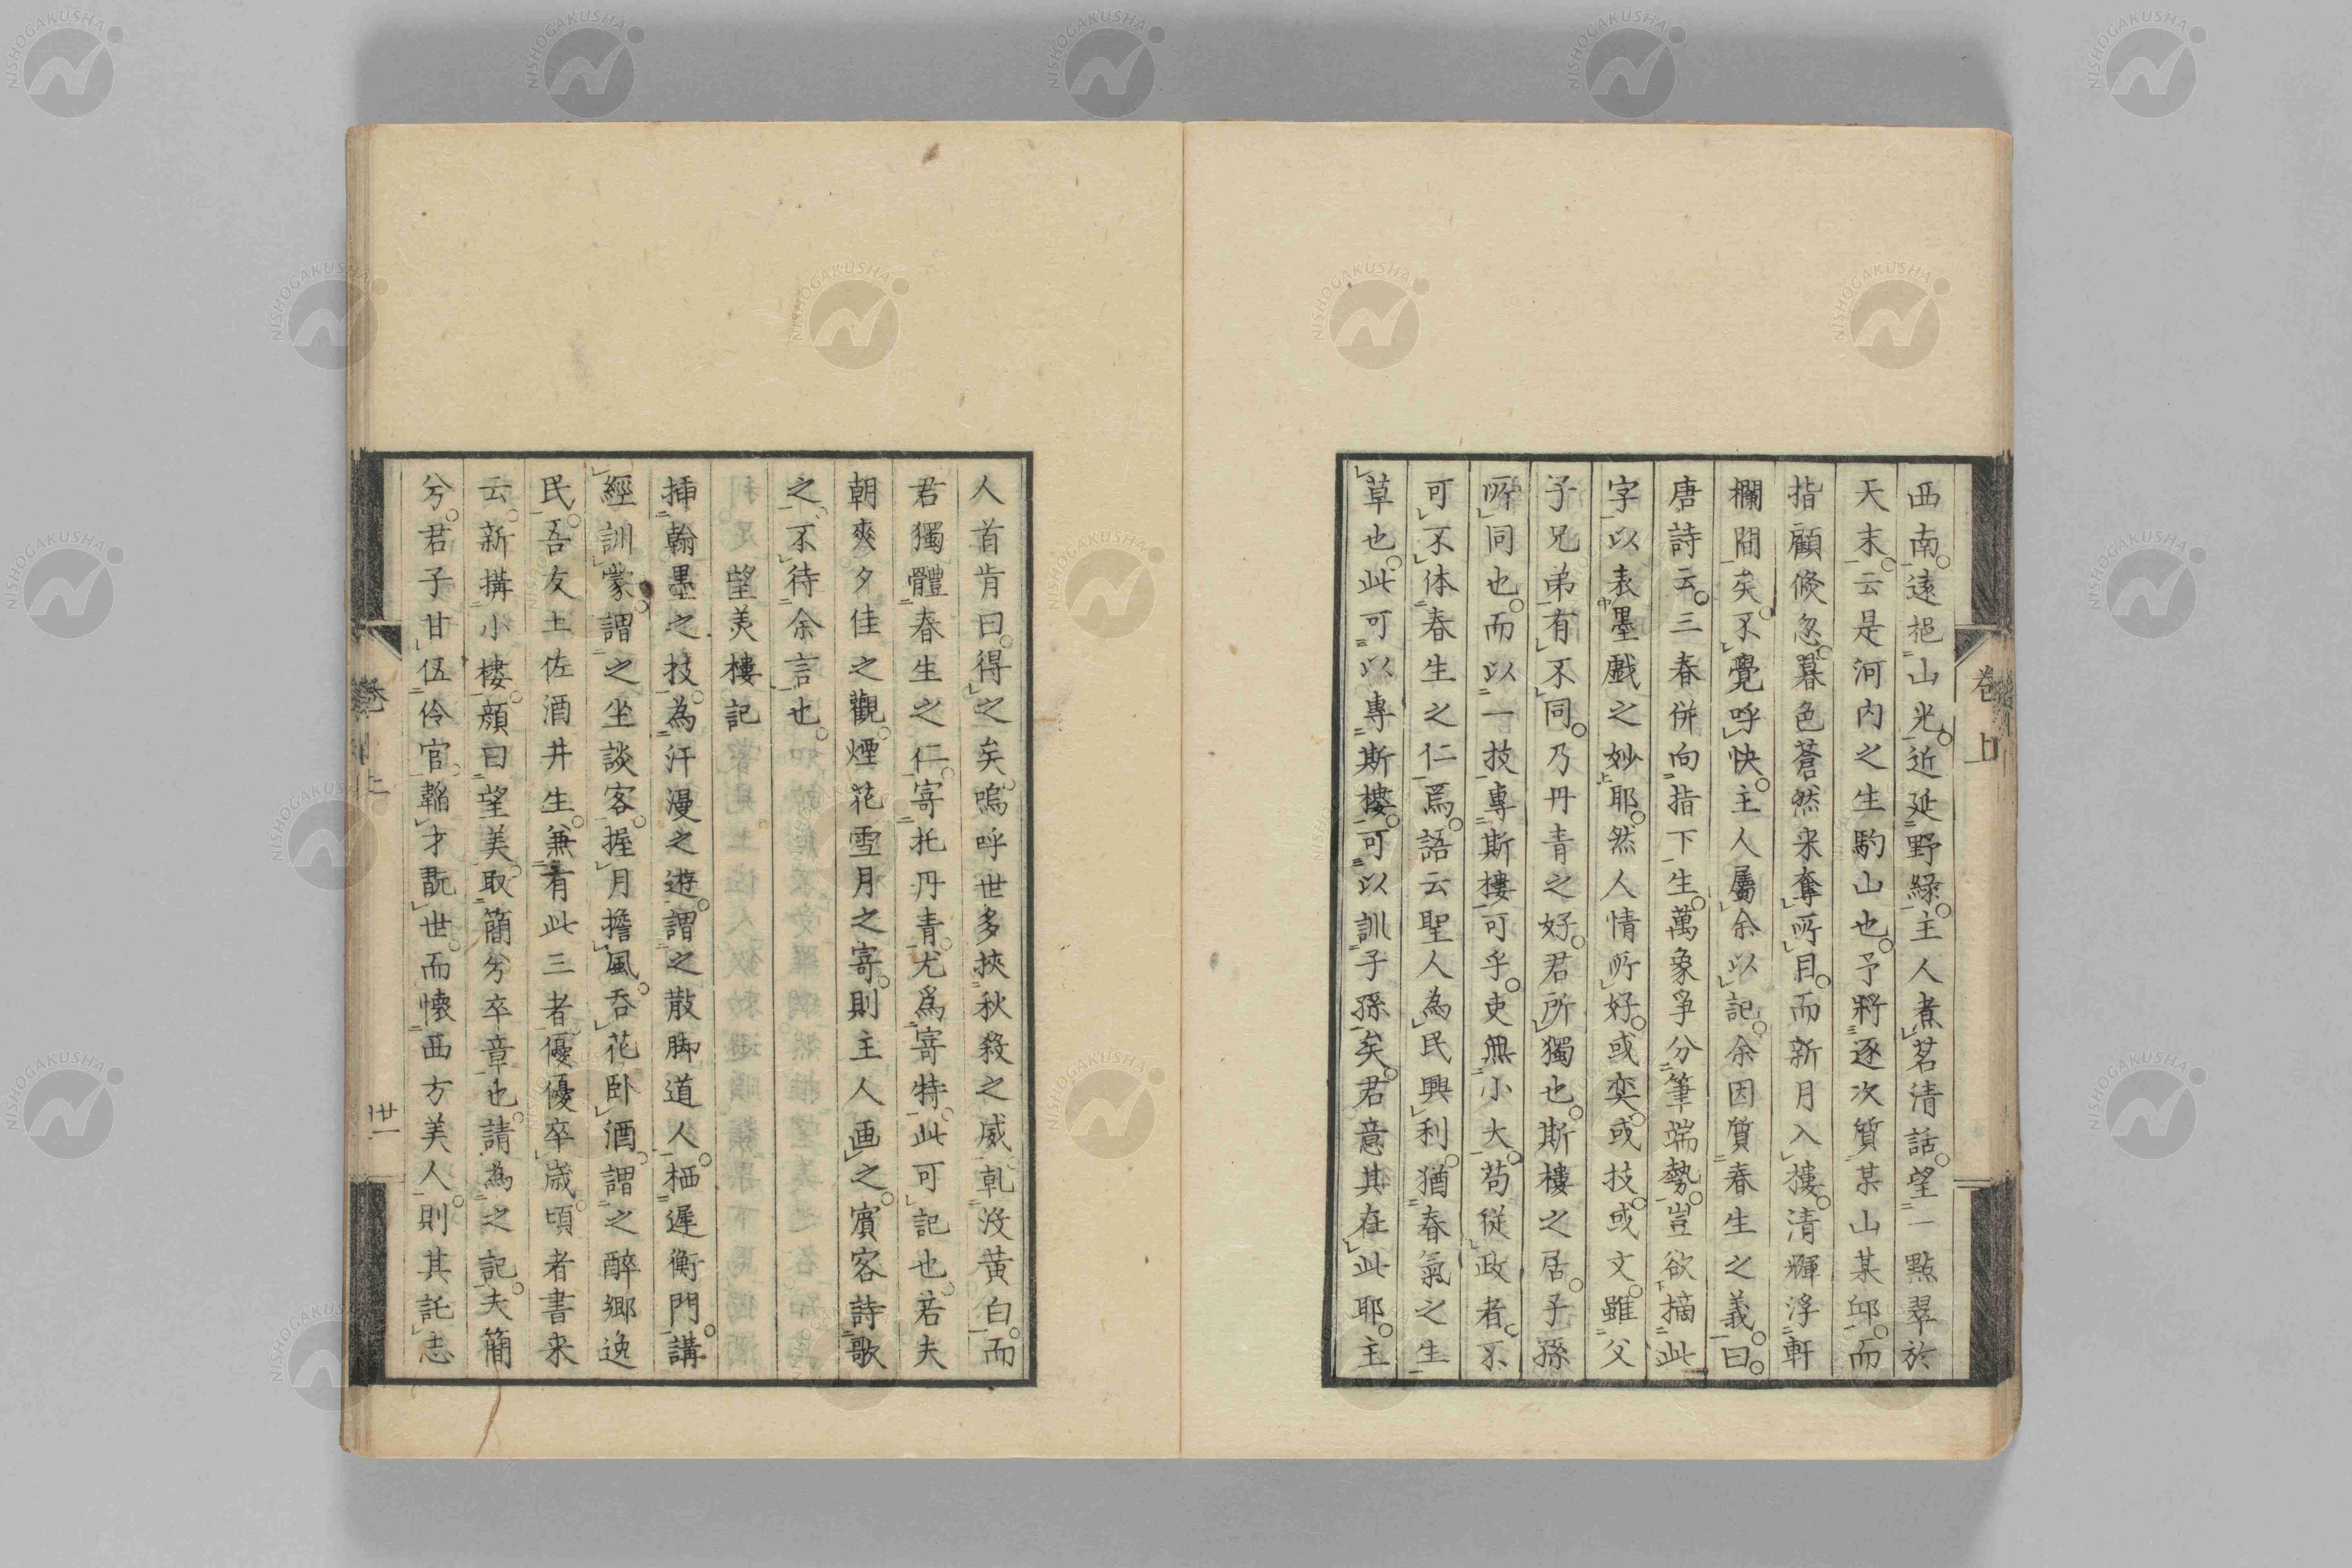 西南。遠挹山光。近延野綠。主人煮茗清話。望一點翠於
天末。云是河内之生駒山也。予將逐次質某山某邱。而
指顧倏忽。暮色蒼然来奪所目。而新月入樓。清輝浮軒
欄間矣。不覺呼快。主人屬余以記。余因質春生之義。曰。
唐詩云。三春併向指下生。萬象爭分筆端勢。豈欲摘此
字以表墨戲之妙耶。然人情所好。或奕。或技。或文。雖父
子兄弟有不同。乃丹青之好。君所獨也。斯樓之居。子孫
所同也。而以一技專斯樓可乎。吏無小大。苟従政者。不
可不体春生之仁焉。語云聖人為民興利。猶春氣之生
草也。此可以專斯樓。可以訓子孫矣。君意其在此耶。主
卷上
人首肯曰。得之矣。嗚呼世多挾秋殺之威。乹没黄白。而
君獨體春生之仁。寄托丹青。尤爲寄特。此可記也。若夫
朝爽夕佳之觀。煙花雪月之寄。則主人画之。賓客詩歌
之。不待余言也。
望美樓記
挿翰墨之技。為汗漫之遊。謂之散脚道人。栖遲衡門。講
經訓蒙。謂之坐談客。握月擔風。呑花卧酒。謂之醉郷逸
民。吾友土佐酒井生。兼有此三者。優優卒歳。頃者書来
云。新搆小樓。顔曰望美。取簡兮卒章也。請為之記。夫簡
兮。君子甘伍伶官。韜才翫世。而懐西方美人。則其託志
卷上
卅一